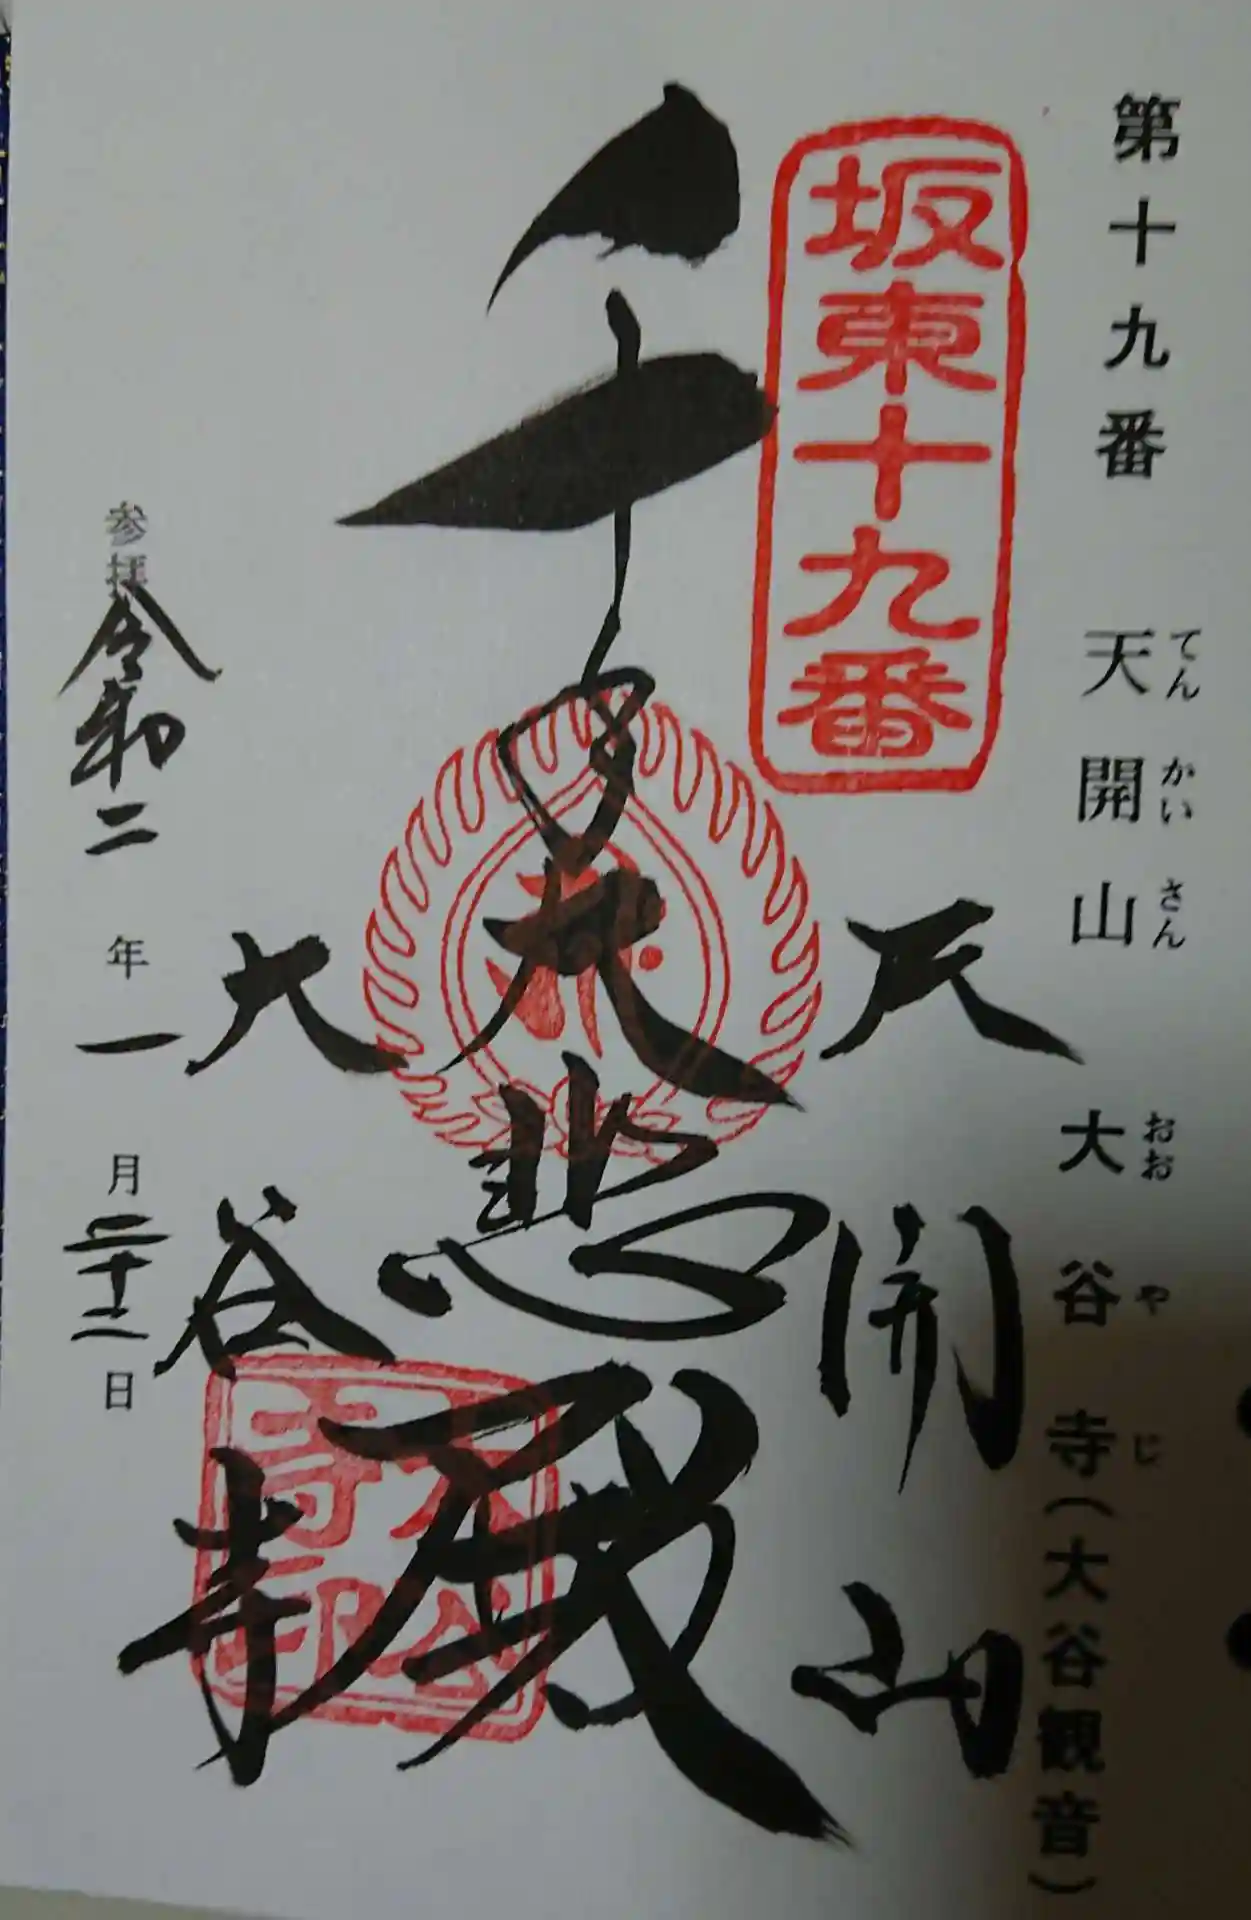 第十九番 天開山 大谷寺(大谷観音)
てんかいさん おおやじ
坂東十九番
天開山
千手大悲殿
大谷寺
大谷寺印
参拝 令和二年一月二十二日